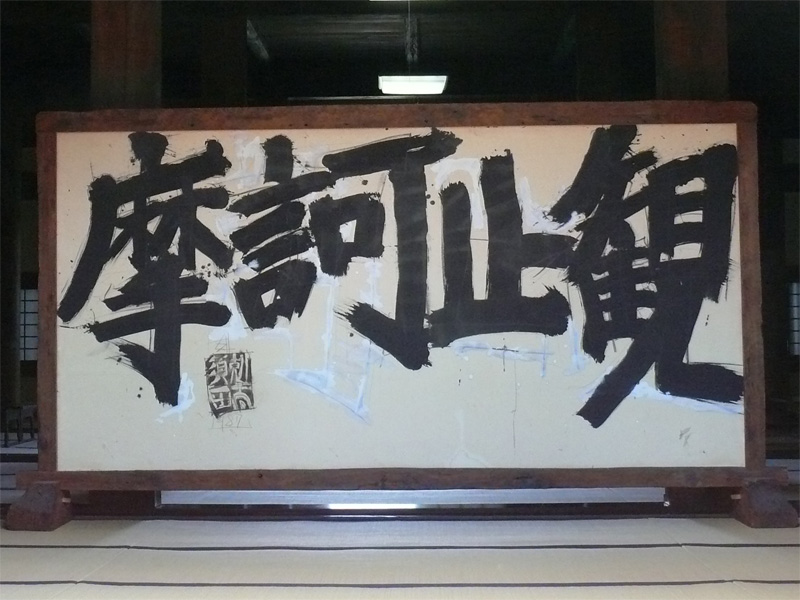 摩訶止観